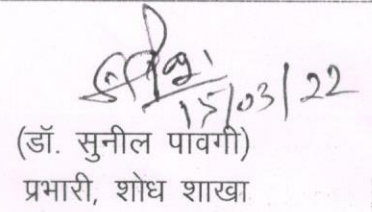 15/03/22
(डॉ. सुनील पावगी)
प्रभारी, शोध शाखा